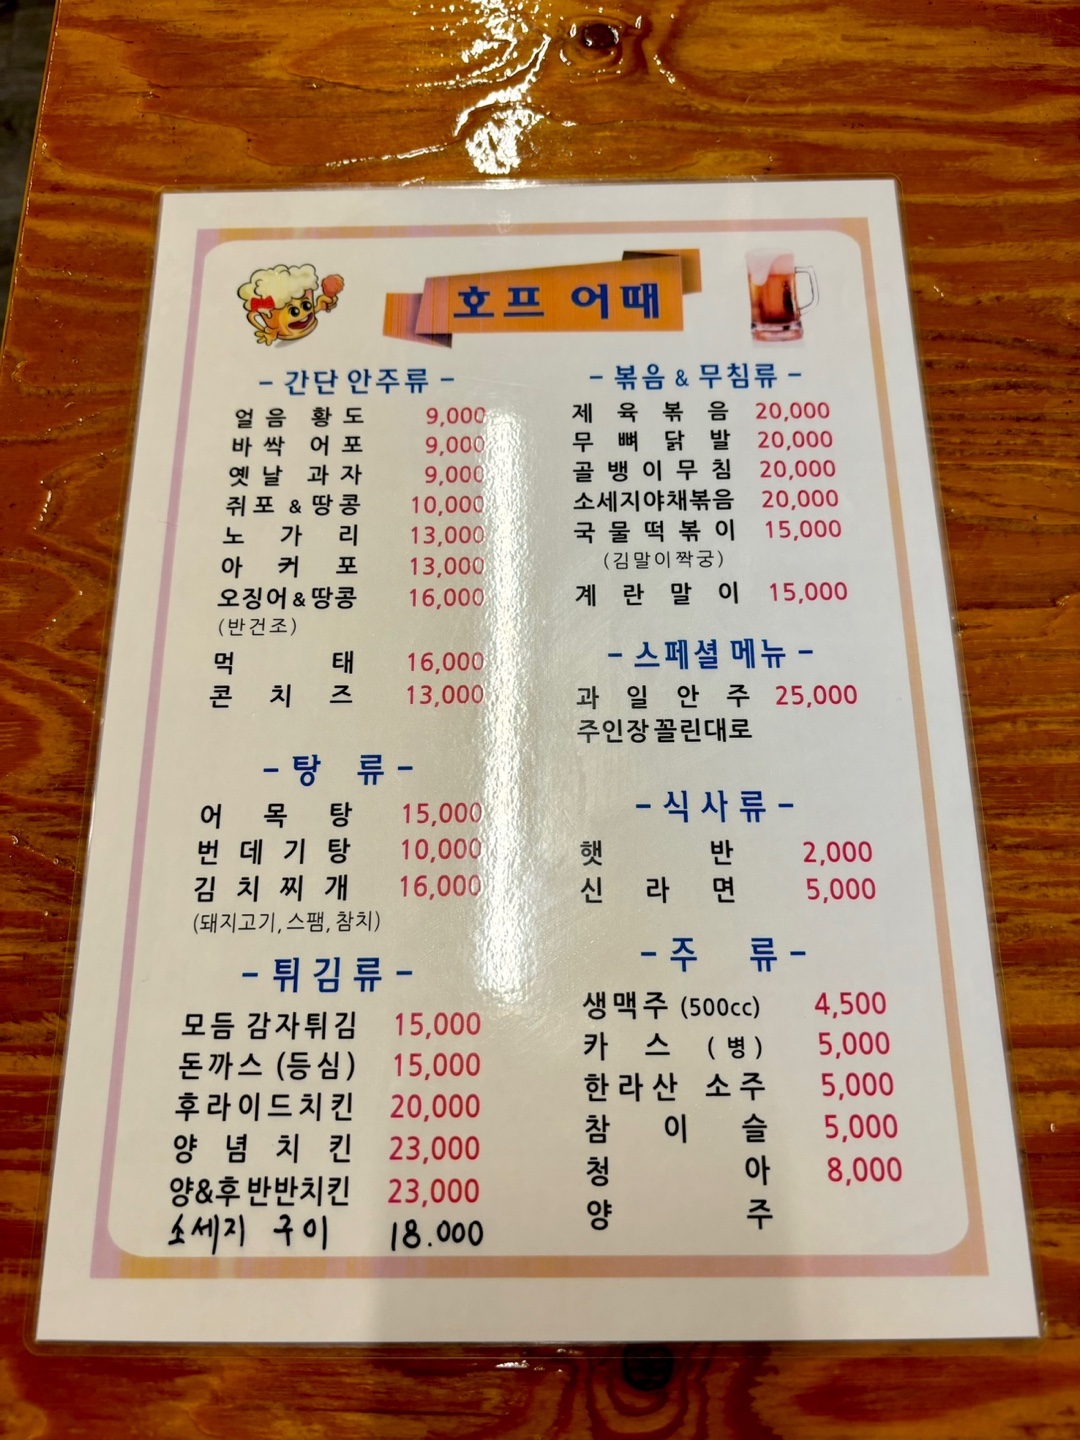 호프 어때
- 간단 안주류 -
얼음 황도 9,000
바싹 어포 9,000
옛날 과자 9,000
쥐포 & 땅콩 10,000
노가리 13,000
아커포 13,000
오징어&땅콩 16,000
(반건조)
먹태 16,000
콘치즈 13,000
- 탕 류 -
어묵탕 15,000
번데기탕 10,000
김치찌개 16,000
(돼지고기, 스팸, 참치)
- 튀김류 -
모듬 감자튀김 15,000
돈까스 (등심) 15,000
후라이드치킨 20,000
양념치킨 23,000
양&후 반반치킨 23,000
소세지 구이 18.000
- 볶음 & 무침류 -
제육볶음 20,000
무뼈닭발 20,000
골뱅이무침 20,000
소세지야채볶음 20,000
국물떡볶이 15,000
(김말이짝궁)
계란말이 15,000
- 스페셜 메뉴 -
과일안주 25,000
주인장 꼴린대로
- 식사류 -
햇반 2,000
신라면 5,000
- 주 류 -
생맥주 (500cc) 4,500
카스 (병) 5,000
한라산 소주 5,000
참이슬 5,000
청아 8,000
양주